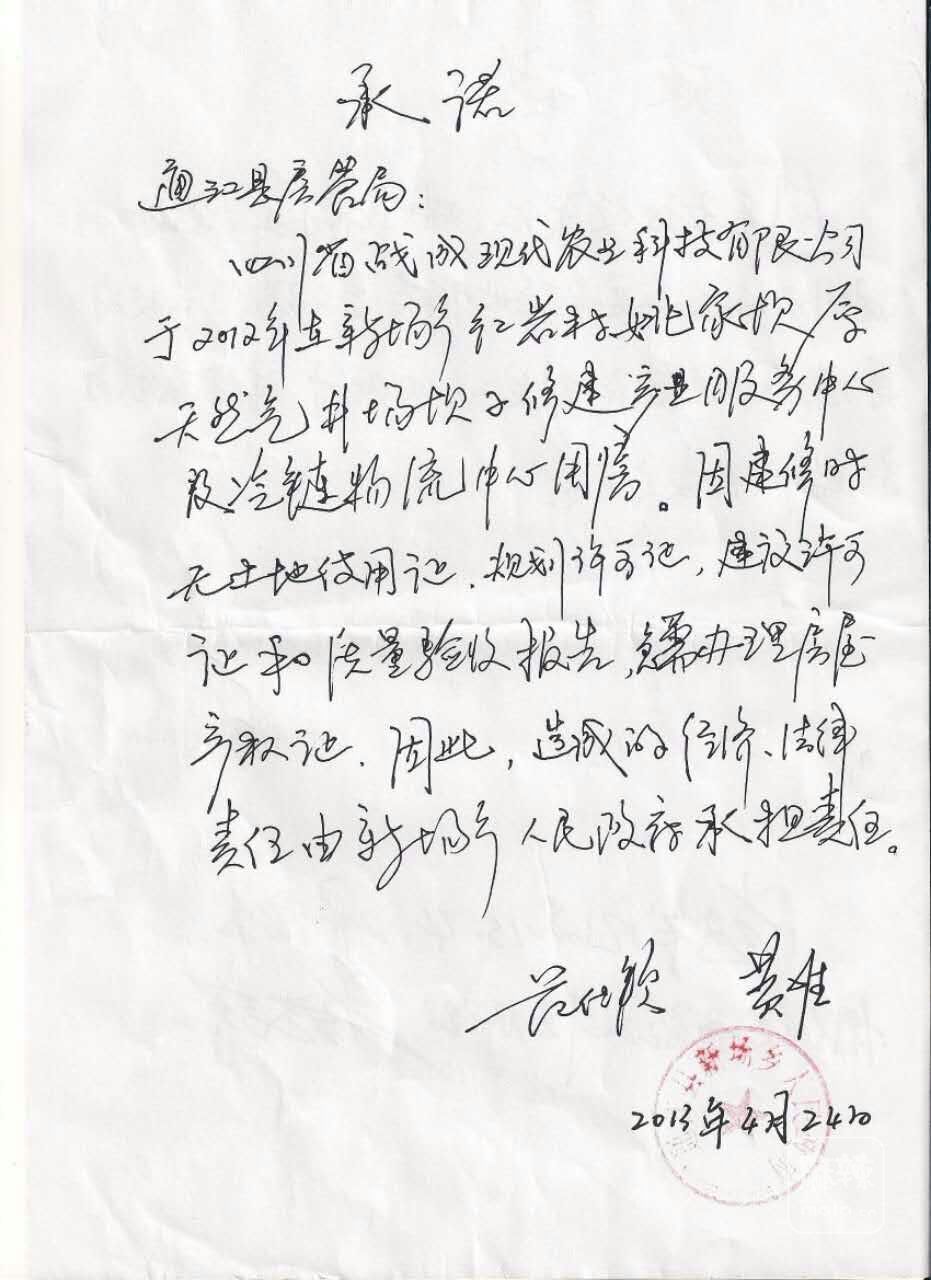 承诺
通江县房管局：
四川省战成现代农业科技有限公司
于2012年在新场乡红岩村姚家坝原
天然气井场坝子修建产业服务中心
及冷链物流中心用房。因建修时
无土地使用证、规划许可证，建设许可
证和质量验收报告，需办理房屋
产权证。因此，造成的经济、法律
责任由新场乡人民政府承担责任。
2013年4月24日
新场乡人民
麻辣
mala.cn